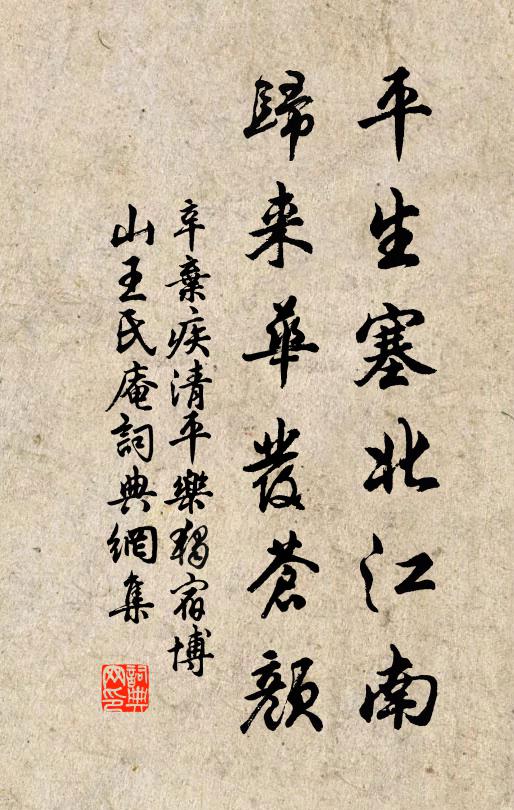 平生塞北江南
歸来華發蒼顏
辛棄疾清平樂獨宿博
山王氏庵詞典網集
詞典
网印